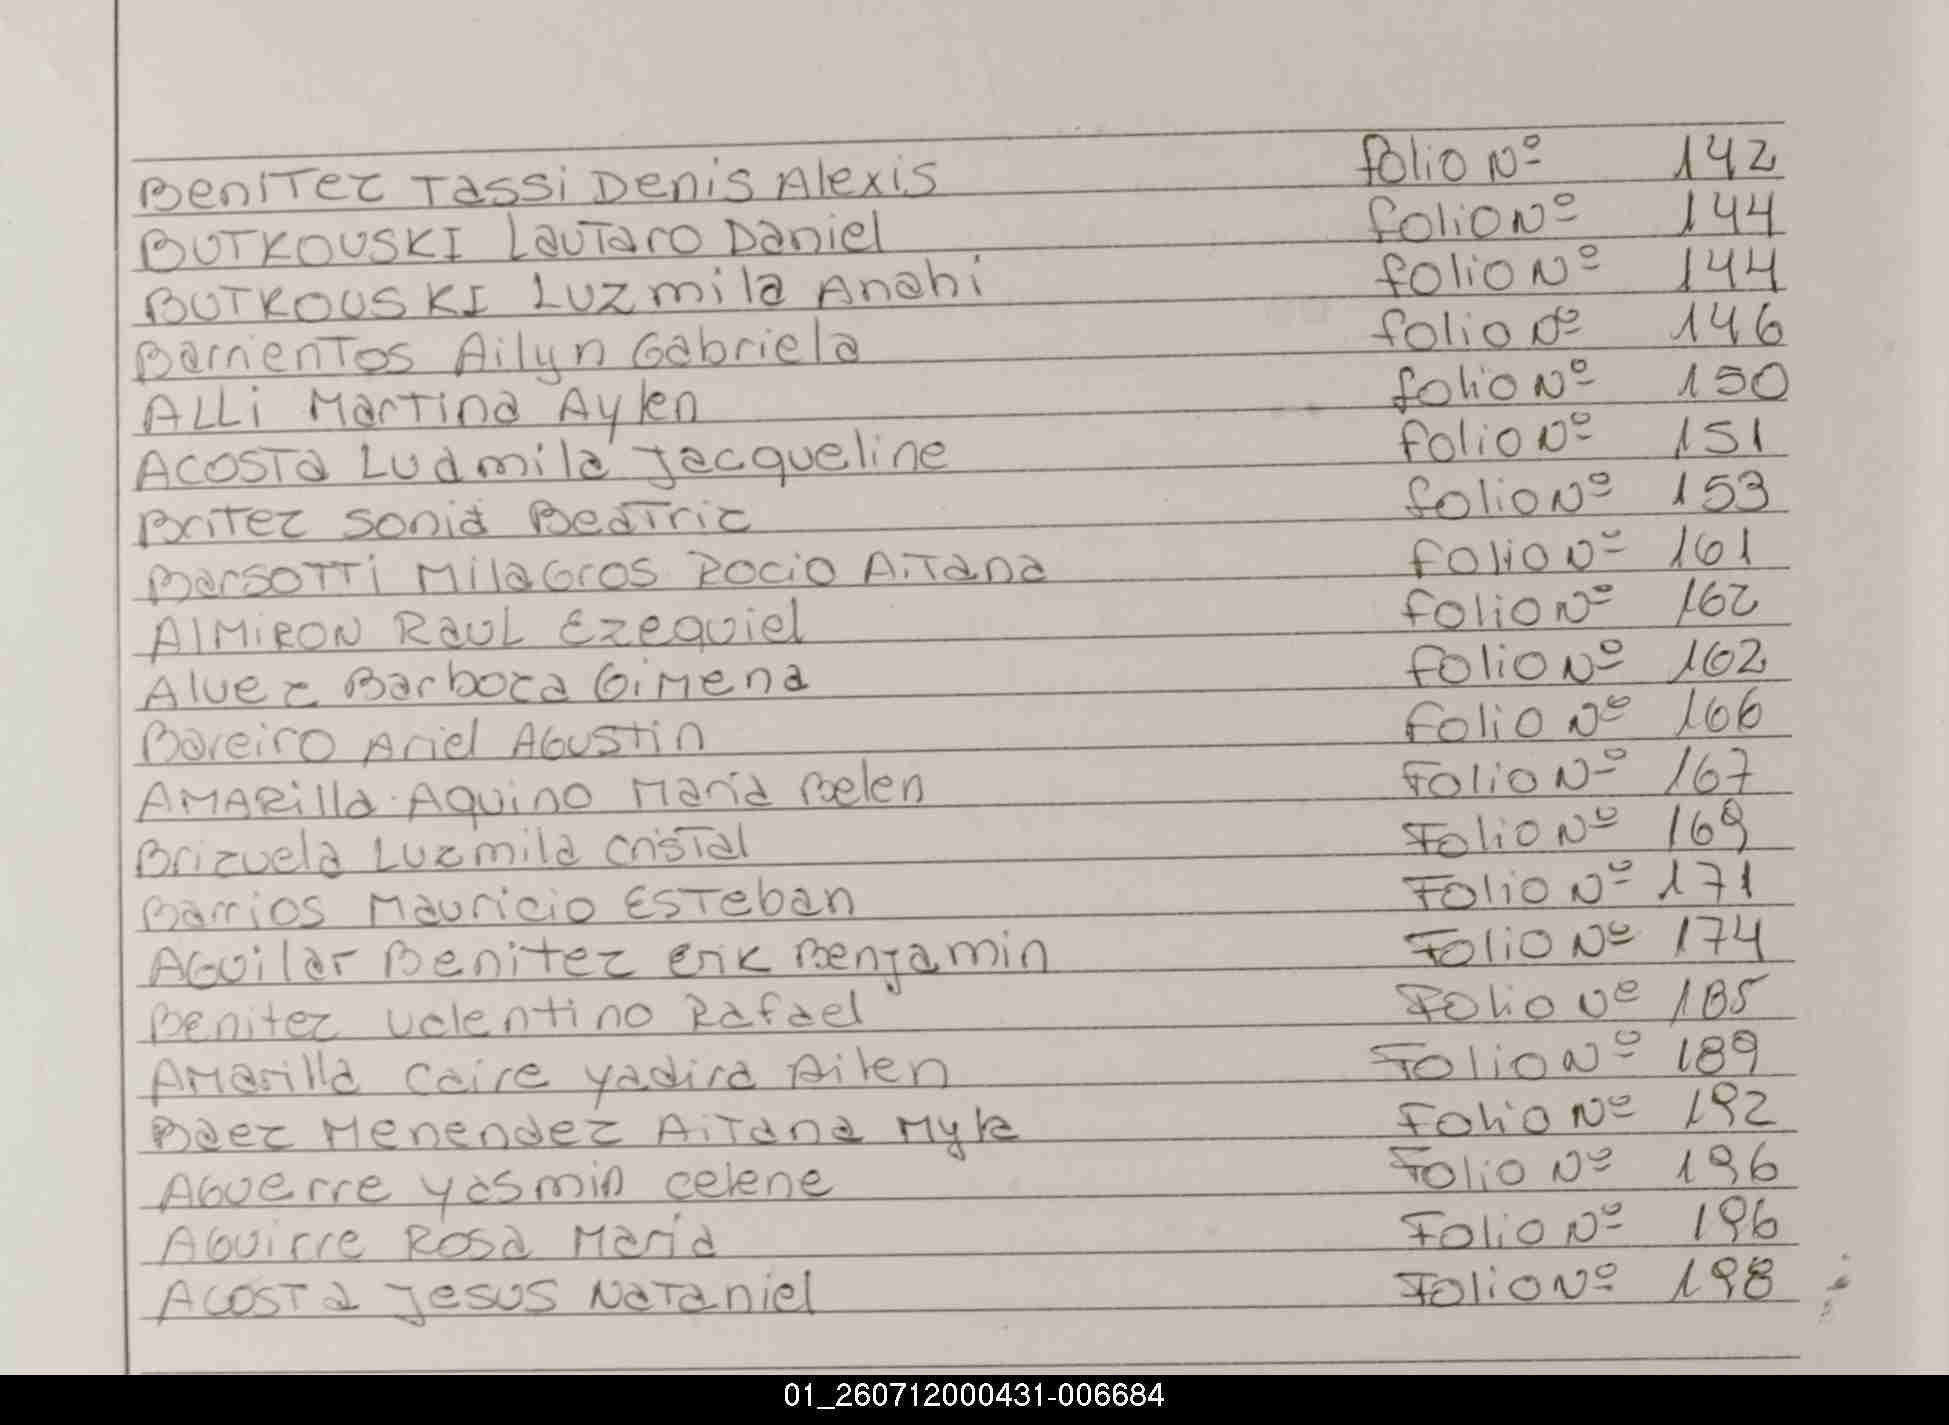 Benitez Tassi Denis Alexis folio Nº 142
BUTKOUSKI Lautaro Daniel folio Nº 144
BUTKOUSKI Luzmila Anahi folio Nº 144
Barrientos Ailyn Gabriela folio Nº 146
ALLi Martina Aylen folio Nº 150
ACOSTA Ludmila Jacqueline folio Nº 151
Britez Sonia Beatriz folio Nº 153
Barsotti Milagros Rocio Aitana folio Nº 161
AlMiRON Raul Ezequiel folio Nº 162
Alvez Barboza Gimena folio Nº 162
Bareiro Ariel Agustin folio Nº 166
AMARilla Aquino Maria Belen Folio Nº 167
Brizuela Luzmila Cristal Folio Nº 169
Barrios Mauricio Esteban Folio Nº 171
Aguilar Benitez Erik Benjamin Folio Nº 174
Benitez Valentino Rafael Folio Nº 185
Amarilla Caire Yadira Ailen Folio Nº 189
Baez Menendez Aitana Myla Folio Nº 192
Aguerre Yasmin Celene Folio Nº 196
Aguirre Rosa Maria Folio Nº 196
ACOSTA Jesus Nataniel Folio Nº 198
01_260712000431-006684